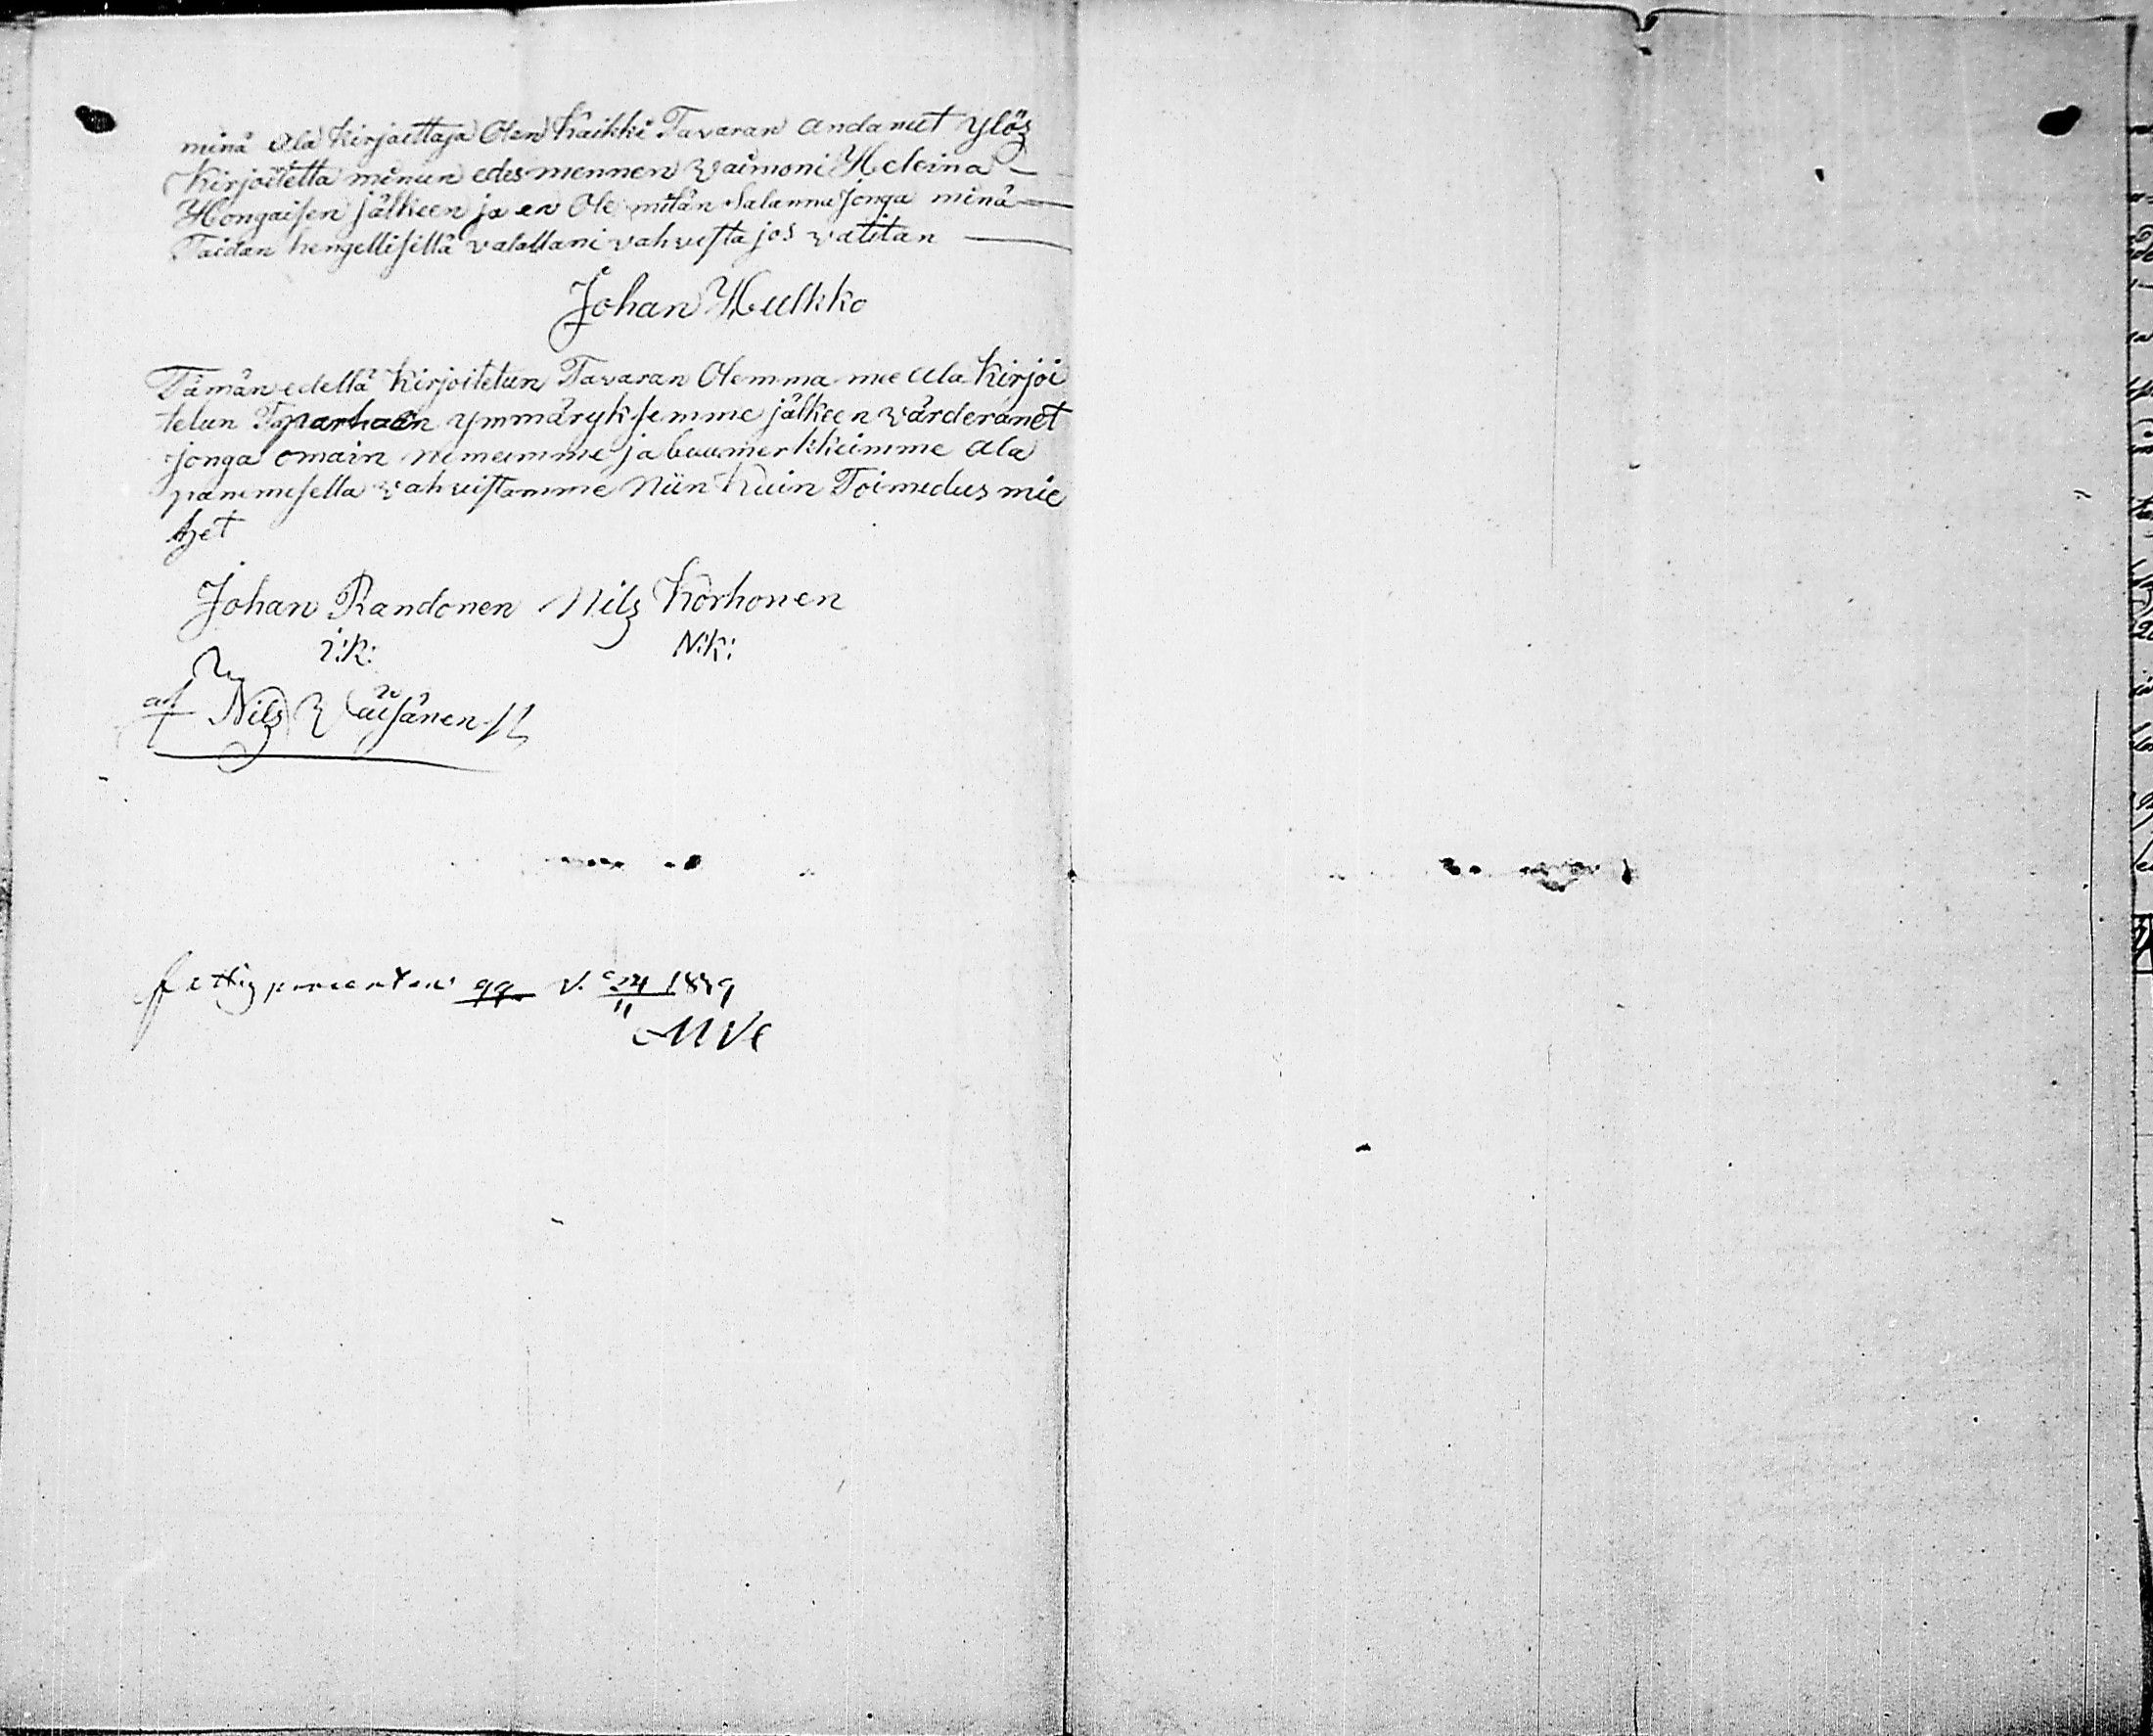 minä ala Kirjoittaja Olen Kaikki Tavaran andanut ylöz
Kirjoitetta minun edesmennen Waimoni Heleina
Hongaisen jälkeen ja en Ole mitän Salannu jonga minä
Taidan hengellisellä valallani vahvista jos vatitan
Johan Hulkko
Tämän edellä Kirjoitetun Tavaran Olemma me ala Kirjoi
tetun parhan ymmäryksemme jälkeen wärderanet
jonga omain nimeimme ja buumerkkeimme ala
panemisella vahvistamme Niin Kuin Toimedus mie
het
Johan Randonen Nils Korhonen
I:R: N:K:
af Nils Wäisänen
fattigprocenten qq d. 24/11 1839
MVC